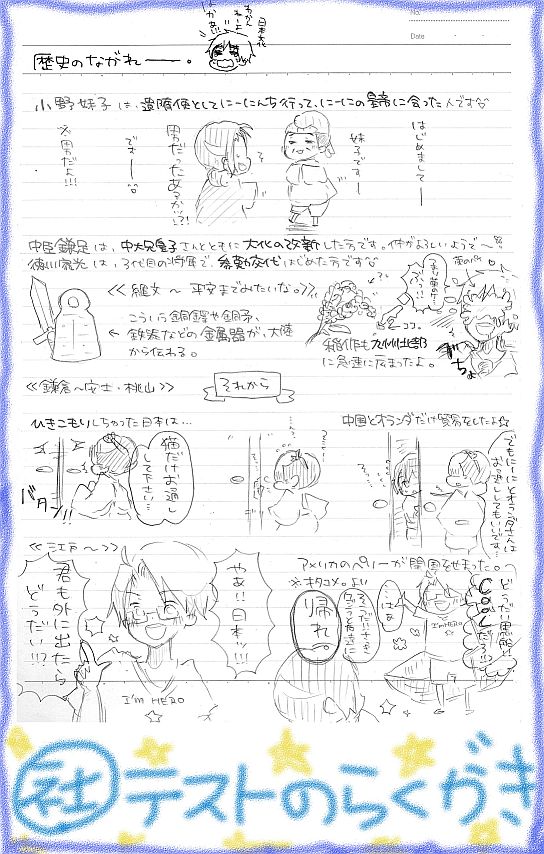 No.
Date
歴史のながれ――。
小野妹子は、遣隋使としてにーにんち行って、にーにの皇帝に会った人です
はじめましてー
妹子ですー
男だったあるかっ?!
でーー。
※男だよ!!!
中臣鎌足は、中大兄皇子さんとともに大化の改新した方です。仲がよろしいようで〜
徳川家光は、3代目の将軍で、参勤交代はじめた方です
≪縄文〜平安までみたいな。≫
こういう銅鐸や銅矛、
鉄器などの金属器が、大陸
から伝わる。
ココ。
稲作も九州北部
に急速に広まったよ。
≪鎌倉〜安土・桃山≫
それから
ひきこもりしちゃった日本は…
猫だけお通し
して下さい…
バター
中国とオランダだけ貿易をしたよ☆
でもにーにとオランダさんは
お通ししてもいいです…
≪江戸〜≫
やぁ!!日本ッ!!!
君も外に出たら
どうだい!!?
I'm HERO
アメリカのペリーが開国をせまった。
※キタユメ。より
どうだい黒船!!
Coolだろ!?
…はぁ
帰れ。
I'm HERO
社テストのらくがき